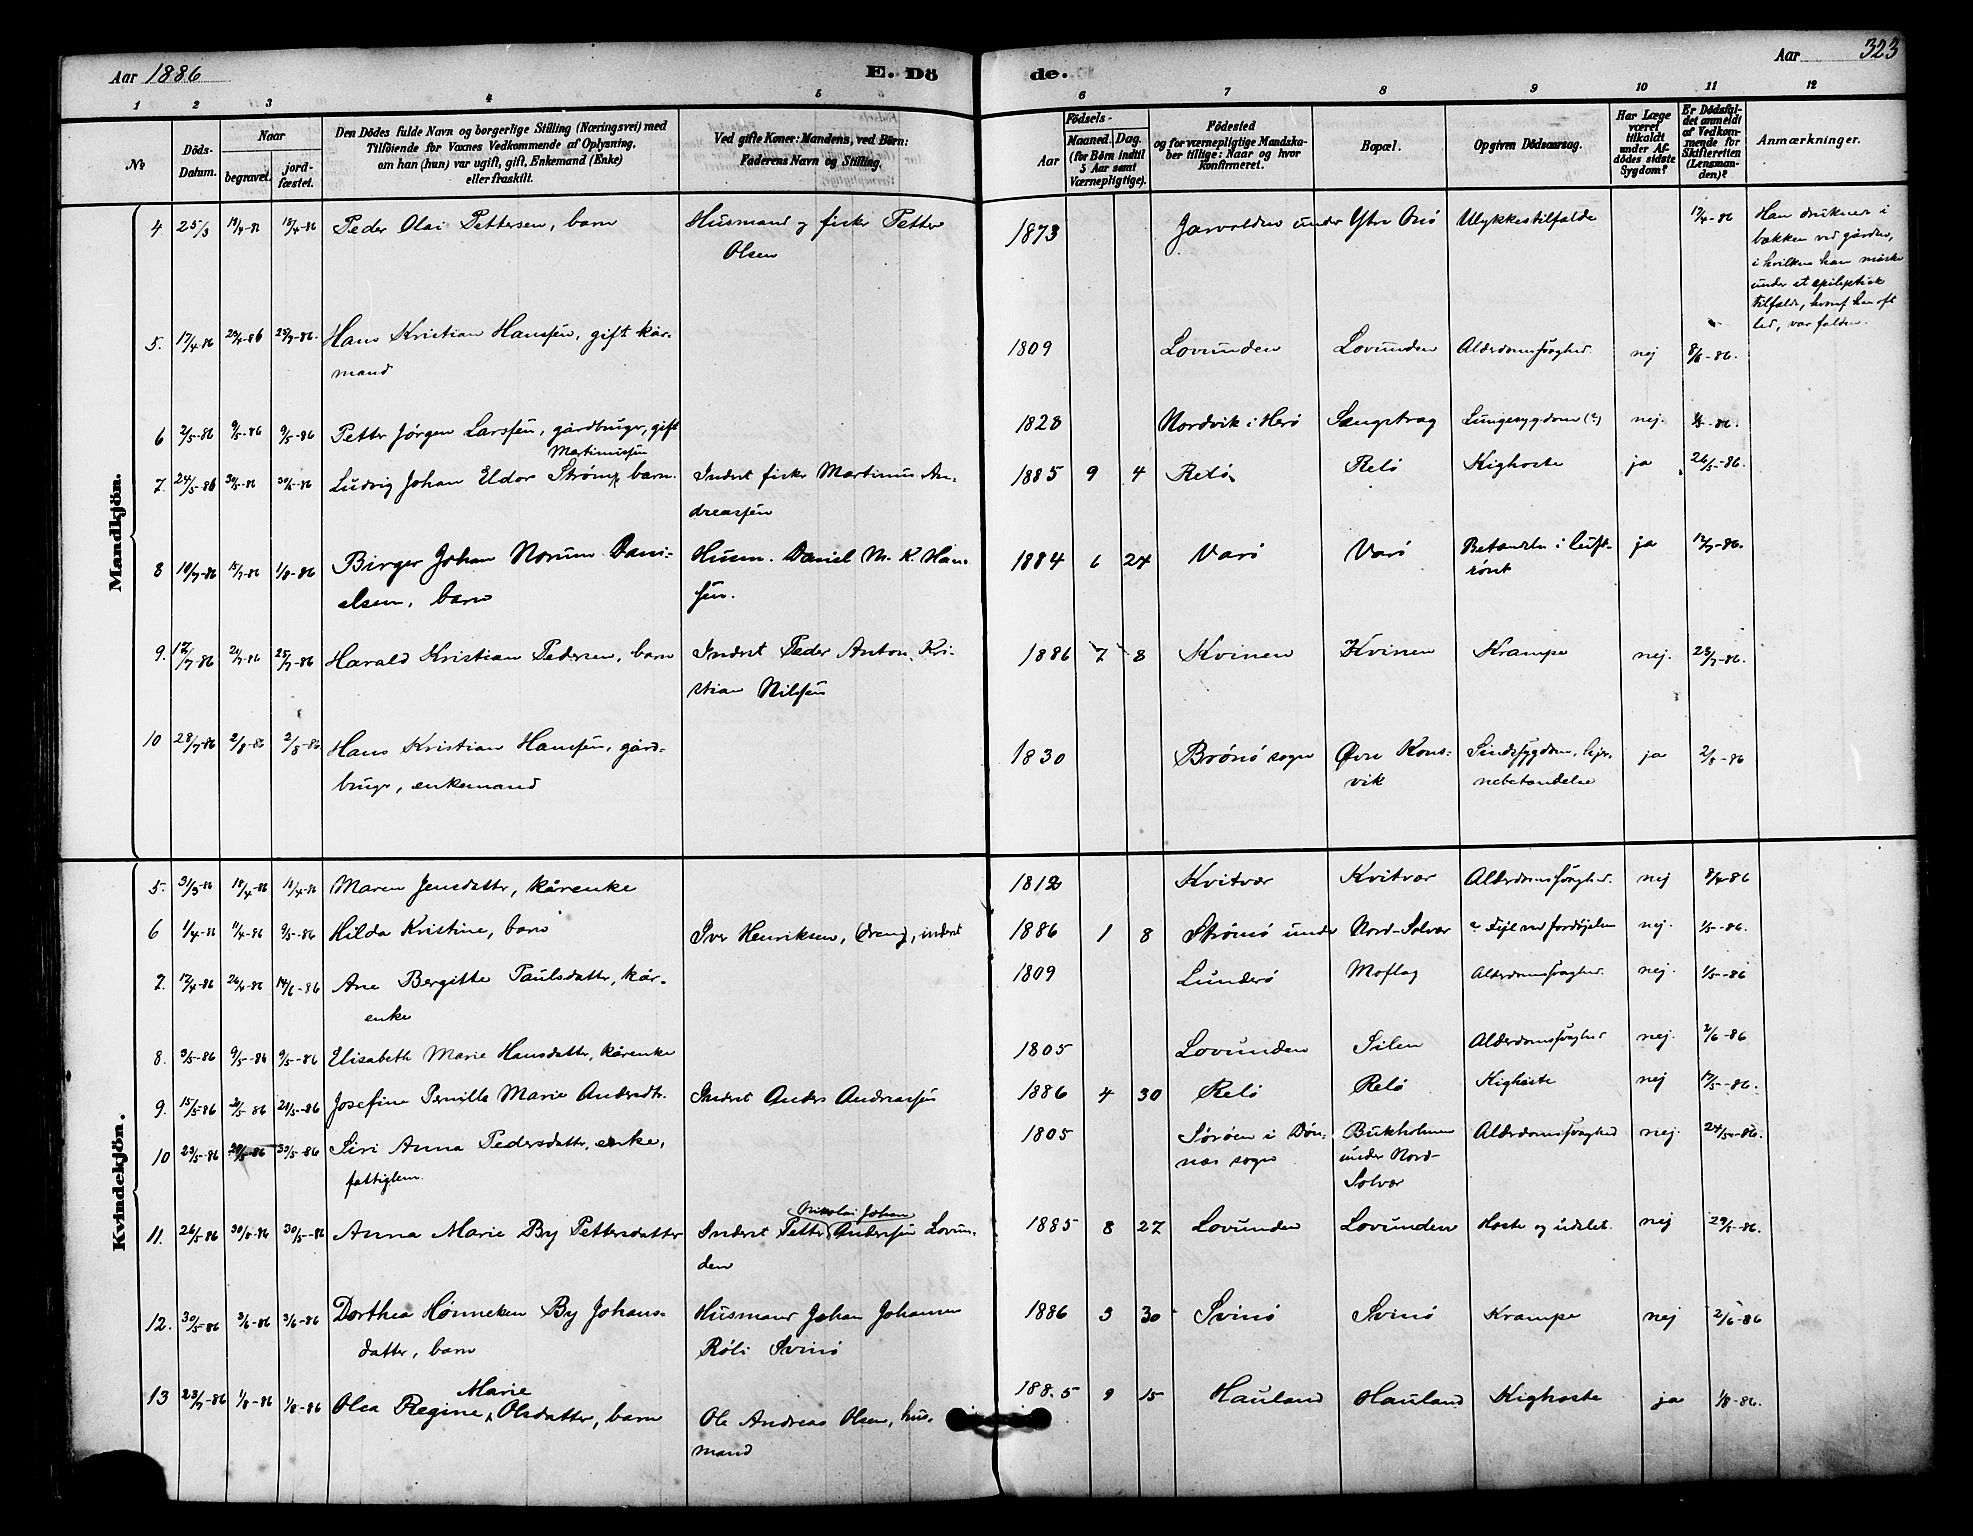 Aar 1886 E. Dö
de. Aar 323
1 2 3 4 5 6 7 8 9 10 11 12
No
Döds-Datum.
Naar
begravet.
jord-fæstet.
Den Dödes fulde Navn og borgerlige Stilling (Næringsvei) med
Tilföiende for Voxnes Vedkommende af Oplysning,
om han (hun) var ugift, gift, Enkemand (Enke)
eller fraskilt.
Ved gifte Koner: Mandens, ved Börn:
Faderens Navn og Stilling.
Födsels-
Aar
Maaned. Dag.
(for Börn indtil
5 Aar samt
Værnepligtige).
Födested
og for værnepligtige Mandska-
ber tillige: Naar og hvor
Konfirmeret.
Bopæl.
Opgiven Dödsaarsag.
Har Læge
været
tilkaldt
under Af-
dödes sidste
Sygdom?
Er Dödsfal-
det anmeldt
af Vedkom-
mende for
Skifteretten
(Lensman-
den)?
Anmærkninger.
Mandkjön.
4 25/3 19/4-86 Peder Olai Pettersen, barn Husmand og fisker Petter
Olsen
1873 under Ytre Onö Ulykkestilfælde 17/4-86 Han druknede i
bækken ved gården,
i hvilken han måske
under et epileptisk
tilfælde, hvoraf han oft
led, var falden.
5. 17/4 86 Hans Kristian Hanssen, gift kår-
mand
1809 Lovunden Lovunden Alderdomssvaghed nej 8/6-86.
6 2/5-86 9/5-86 9/5-86 Petter Jørgen Larssen, gårdbruger, gift
1828 Nordvik i Herö Sengskrog Lungesygdom (?) nej.
7. 24/5-86 30/5-86 Ludvig Johan Eldor Strøm, Martinussen barn. Inderst fisker Martinus An-
dreassen
1885 9 4 Relö Relö Kighoste ja 26/5-86.
8 10/7-86 1/8-86 Birger Johan Norum Dani-
elsen, barn Husm. Daniel M. K. Han-
sen.
1884 6 24 Varö Varö Betændelse i luft-
röret ja 12/7-86.
9. 12/7-86 25/7-86 Harald Kristian Pedersen, barn Inderst Peder Anton Kri-
stian Nilssen
1886 7 8 Kvinen Kvinen Krampe nej. 23/7-86.
10 28/7-86 2/8-86 2/8-86 Hans Kristian Hanssen, gård-
bruger, enkemand
1830 Brönö sogn Övre Kons-
vik Sindssygdom, hjer-
nebetændelse ja 2/8-86
Kvindekjön.
5. 31/3-86 18/4-86 18/4-86 Maren Jensdatter, kårenke
1812 Kvitvær Kvitvær Alderdomssvaghed. nej 8/4-86
6 1/4-86 11/4-86 9/5-86 Hilda Kristine, barn Iver Henriksen, dreng, inderst
1886 1 8 Strömö under Nord-Solvær ? Fejl ved fordøjelsen nej. 1/5-86.
7. 17/4-86 26/4-86 14/6-86 Ane Bergitte Paulsdatter, kår-
enke
1809 Lunderö Moflag Alderdomssvaghed. nej. 1/5-86
8. 3/5-86 9/5-86 9/5-86 Elisabeth Marie Hansdatter, kårenke
1805 Lovunden Silen Alderdomssvaghed nej. 2/6-86
9. 15/5-86 21/5-86 Josefine Pernille Marie Andersdtr. Inderst Anders Andreassen
1886 4 30 Relö Relö Kighoste nej 17/5-86.
10 23/5-86 30/5-86 30/5-86 Siri Anna Pedersdatter, enke,
fattiglem.
1805 Sörøen i Dön-
næs sogn Bukholmen
under Nord-
Solvær Alderdomssvaghed nej. 24/5-86.
11. 26/5-86 30/5-86 30/5-86 Anna Marie By Pettersdatter Inderst Petter Nicolai Johan Anderssen Lovun-
den
1885 8 27 Lovunden Lovunden Hoste og udslet. nej 29/5-86.
12. 30/5-86 3/6-86 3/6-86 Dorthea Hønneken By Johans-
datter, barn Husmand Johan Johansen
Röli Svinö
1886 3 30 Svinö Svinö Krampe nej 2/6-86
13 23/7-86 1/8-86 1/8-86 Olea Regine Marie Olsdatter, barn Ole Andreas Olsen, hus-
mand
1885 9 15 Hauland Hauland Kighoste ja 1/8-86.